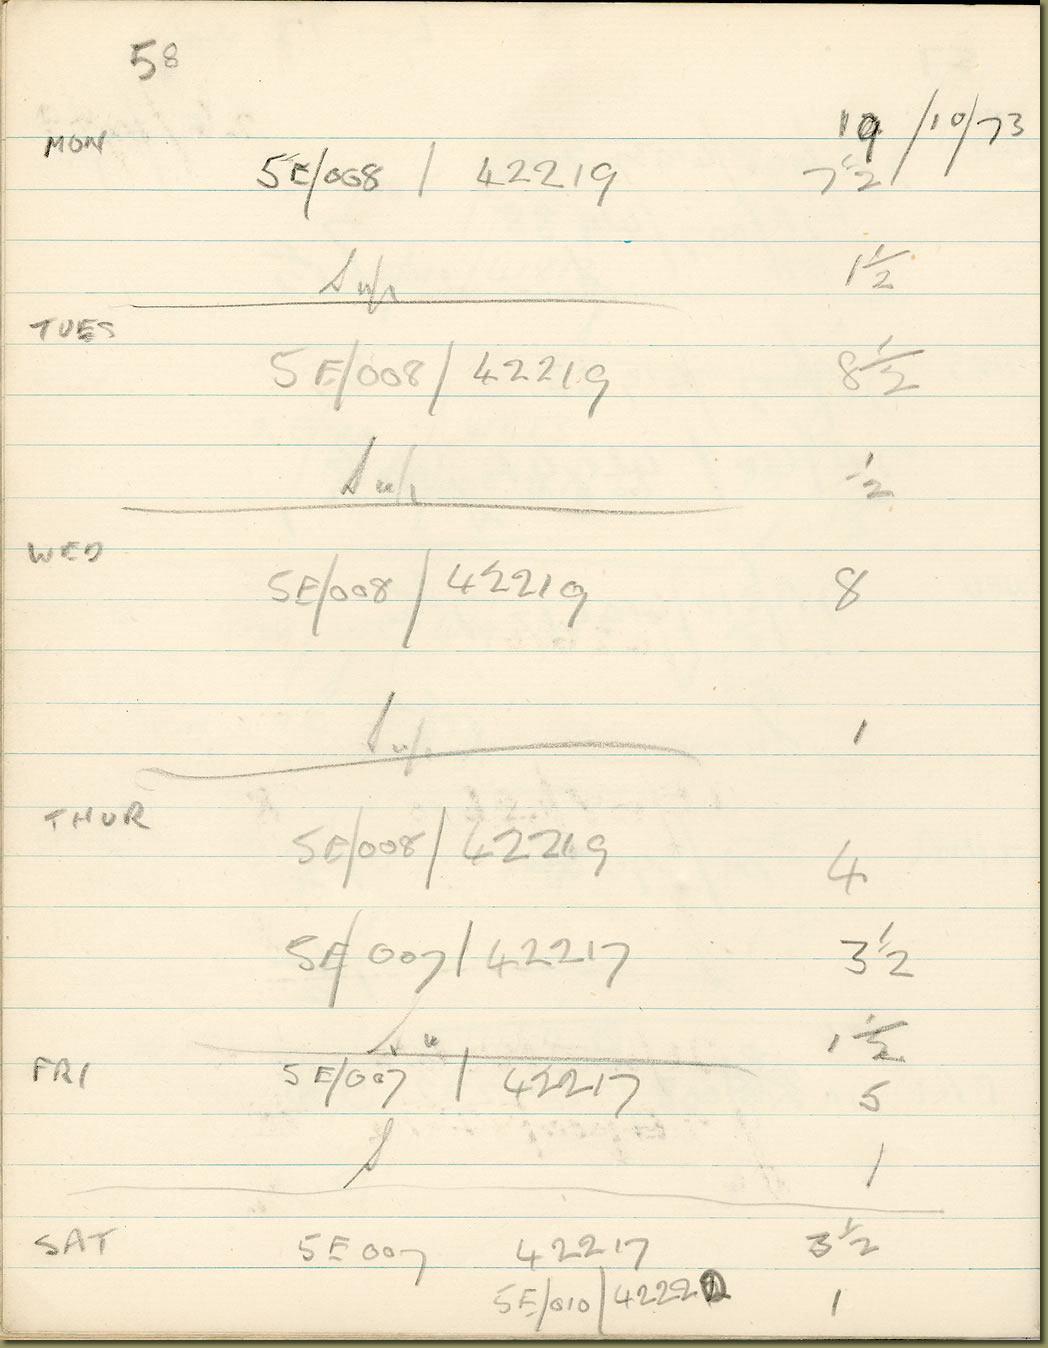 58
19/10/73
MON
5E/008 / 42219 7½
Sup 1½
TUES
5E/008 / 42219 8½
Sup ½
WED
5E/008 / 42219 8
Sup 1
THUR
5E/008 / 42219 4
5E/007 / 42217 3½
Su 1½
FRI 5E/007 / 42217 5
S 1
SAT 5E007 42217 3½
5E/010 / 42220 1